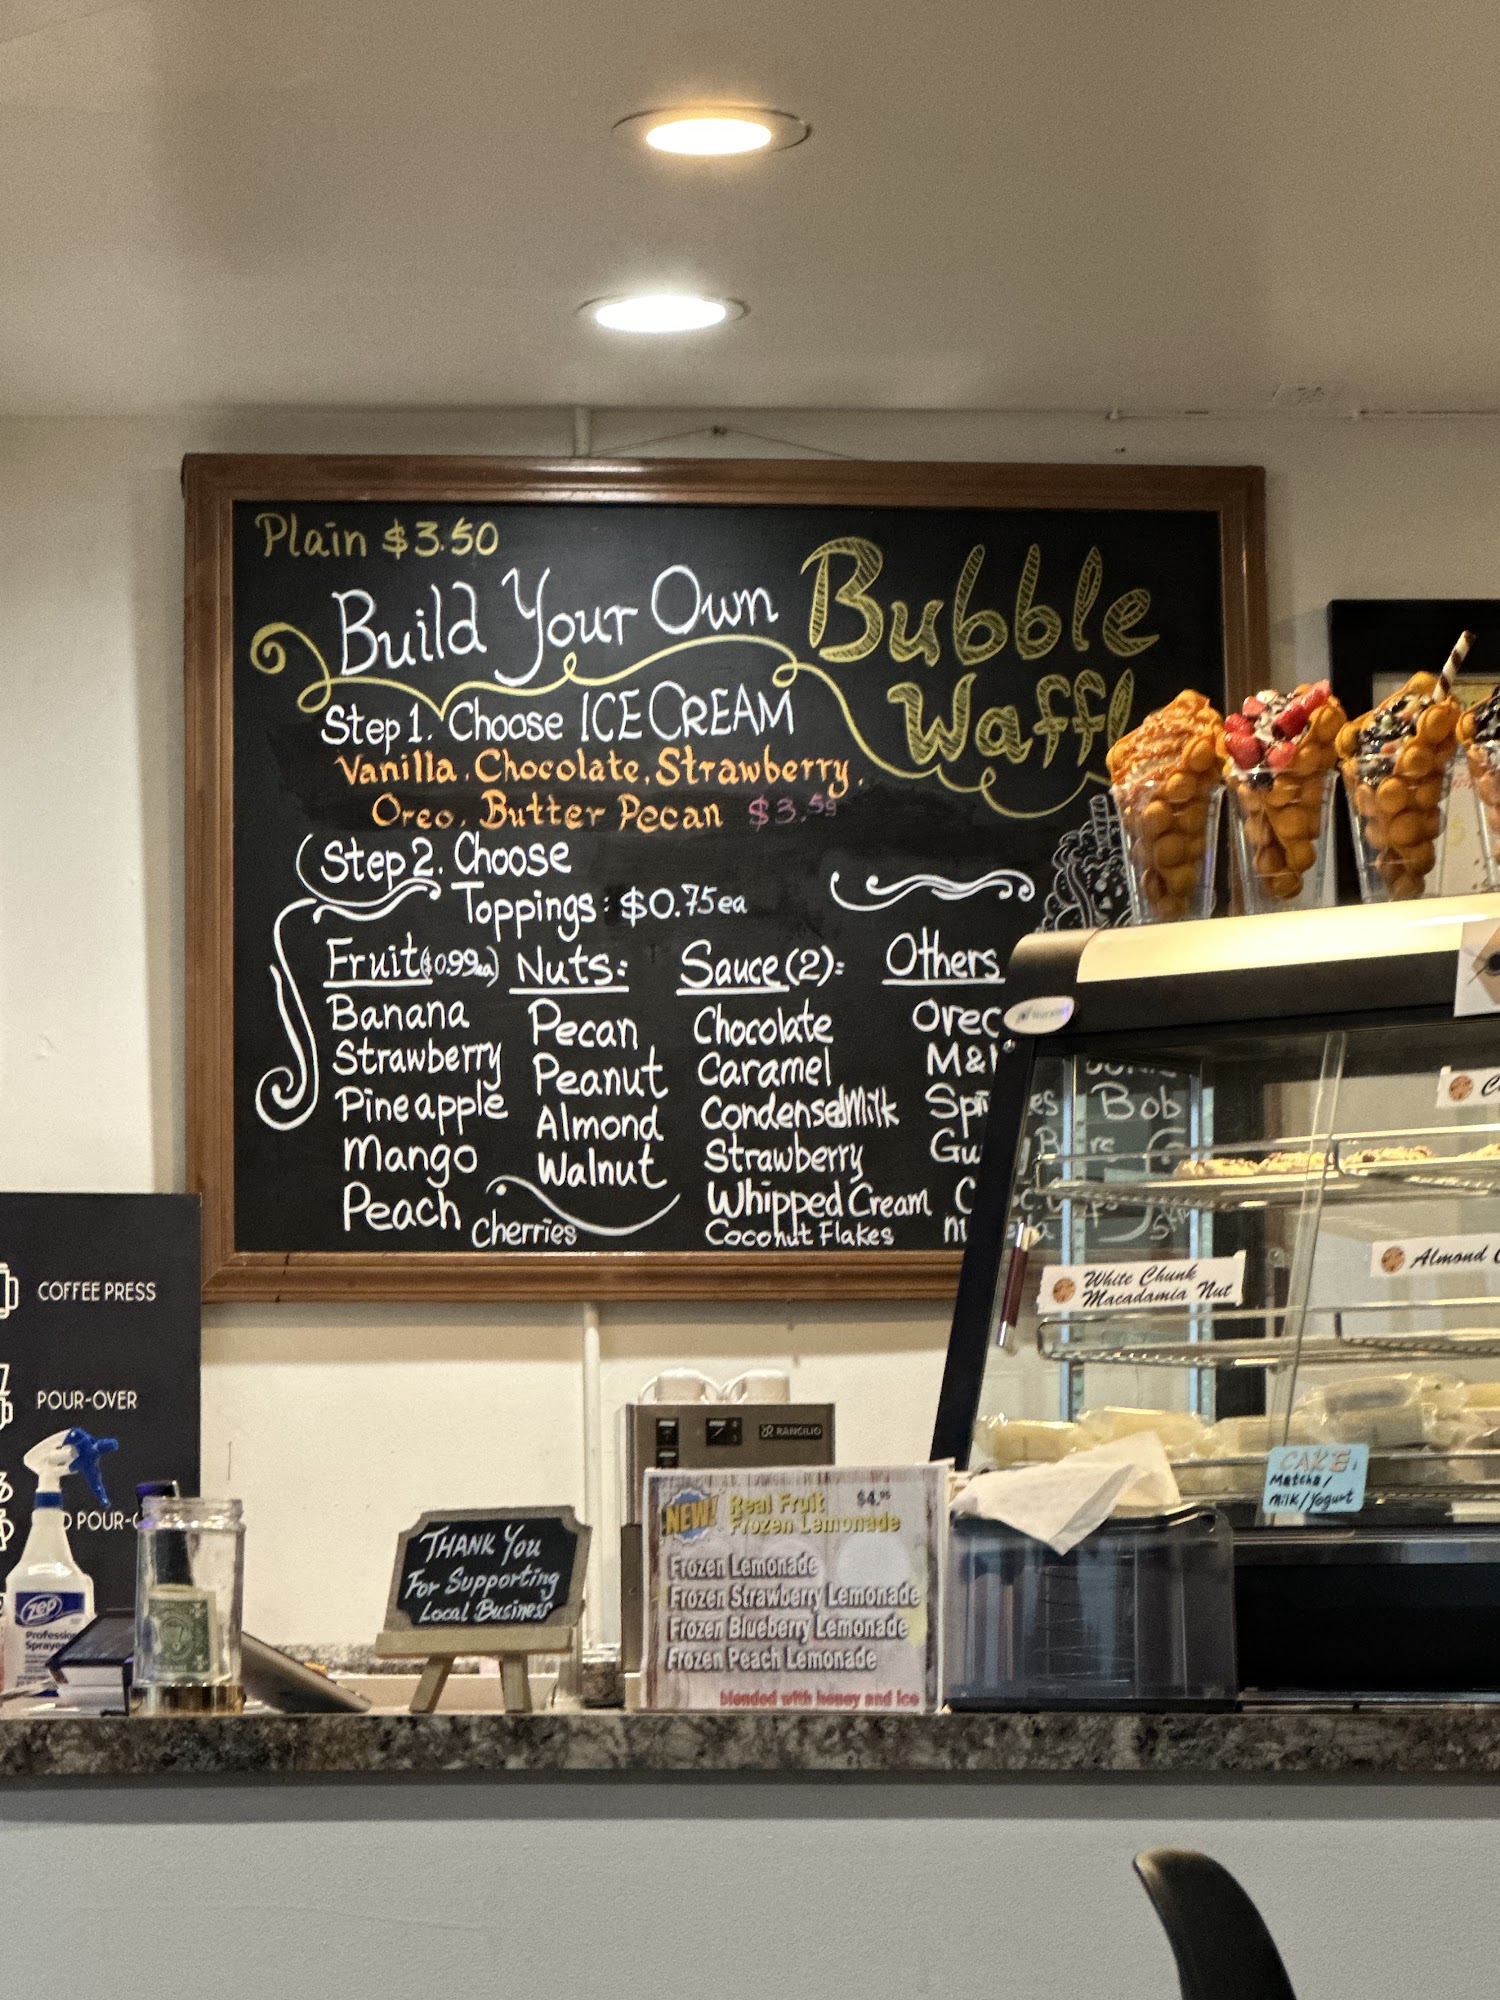 Plain $3.50
Build Your Own Bubble
Step 1. Choose ICE CREAM
Vanilla, Chocolate, Strawberry,
Oreo, Butter Pecan $3.59
Step 2. Choose
Toppings: $0.75ea
Fruit($0.99ea)
Banana
Strawberry
Pineapple
Mango
Peach
Cherries
Nuts:
Pecan
Peanut
Almond
Walnut
Sauce(2):
Chocolate
Caramel
Condensed Milk
Strawberry
Whipped Cream
Coconut Flakes
Others
Bob
COFFEE PRESS
POUR-OVER
zep
Professional
Sprayer
THANK YOU
For Supporting
Local Business
RANCILIO
NEW! Real Fruit $4.95
Frozen Lemonade
Frozen Lemonade
Frozen Strawberry Lemonade
Frozen Blueberry Lemonade
Frozen Peach Lemonade
blended with honey and ice
White Chunk
Macadamia Nut
Almond
CAKE:
Matcha/
Milk/Yogurt